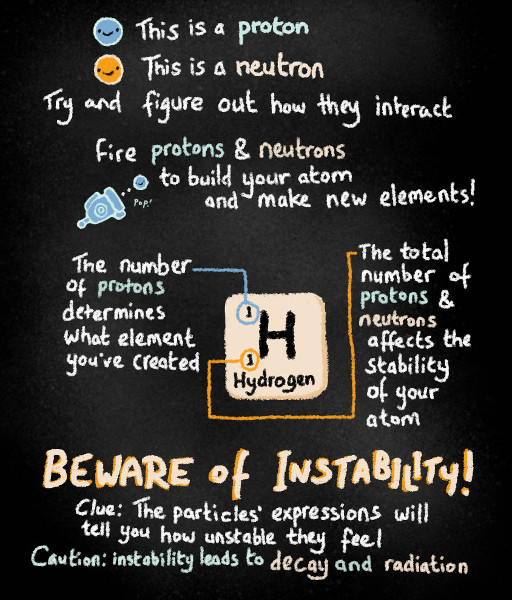 This is a proton
This is a neutron
Try and figure out how they interact
Fire protons & neutrons
to build your atom
Pop!
and make new elements!
The number
of protons
determines
what element
you've created
1
H
1
Hydrogen
The total
number of
protons &
neutrons
affects the
stability
of your
atom
BEWARE of INSTABILITY!
Clue: The particles' expressions will
tell you how unstable they feel
Caution: instability leads to decay and radiation